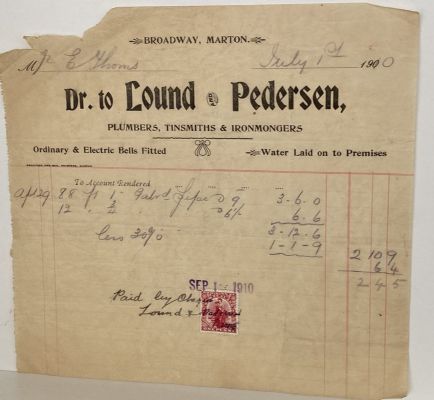 BROADWAY, MARTON.
Mr E Thoms July 1st 1900
Dr. to Lound & Pedersen,
PLUMBERS, TINSMITHS & IRONMONGERS
Ordinary & Electric Bells Fitted Water Laid on to Premises
To Account Rendered
Apl 29 88 ft 1 Galvd Pipe 9 3-6-0
12 " 3/4 " 6/- 6.6
3-12-6
less 30% 1-1-9 2 10 9
6 4
2 4 5
SEP 1 1910
Paid by Cheque
Lound &